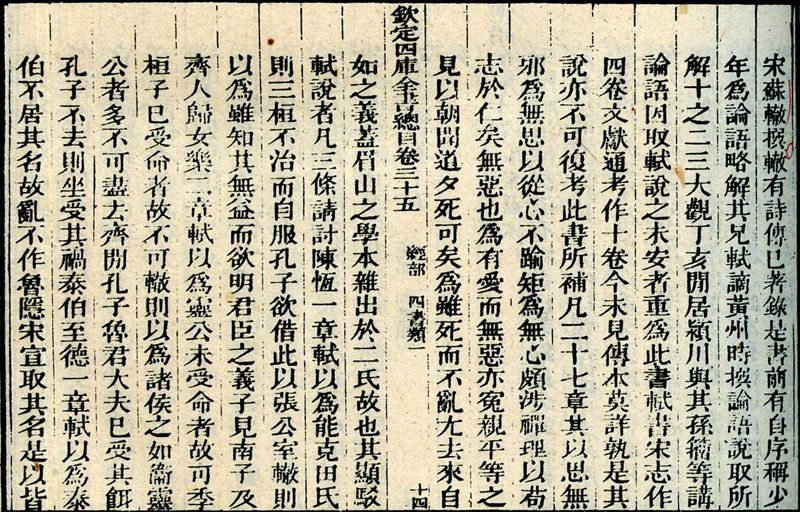 宋蘇轍撰轍有詩傳已著錄是書前有自序稱少
年為論語略解其兄軾謫黃州時撰論語說取所
解十之二三大觀丁亥閒居潁川與其孫籀等講
論語因取軾說之未安者重為此書軾書宋志作
四卷文獻通考作十卷今未見傳本莫詳孰是其
說亦不可復考此書所補凡二十七章其以思無
邪為無思以從心不踰矩為無心頗涉禪理以苟
志於仁矣無惡也為有愛而無惡亦冤親平等之
見以朝聞道夕死可矣為雖死而不亂尤去來自
欽定四庫全書總目卷三十五 經部 四書類一 十四
如之義蓋眉山之學本雜出於二氏故也其顯駁
軾說者凡三條請討陳恆一章軾以為能克田氏
則三桓不治而自服孔子欲借此以張公室轍則
以為雖知其無益而欲明君臣之義子見南子及
齊人歸女樂二章軾以為靈公未受命者故可季
桓子已受命者故不可轍則以為諸侯之如衞靈
公者多不可盡去齊間孔子魯君大夫已受其餌
孔子不去則坐受其禍泰伯至德一章軾以為泰
伯不居其名故亂不作魯隱宋宣取其名是以皆